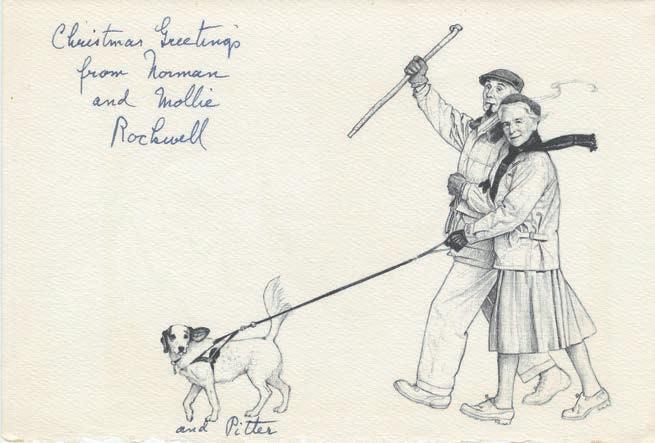 Christmas Greetings
from Norman
and Mollie
Rockwell
and Pitter